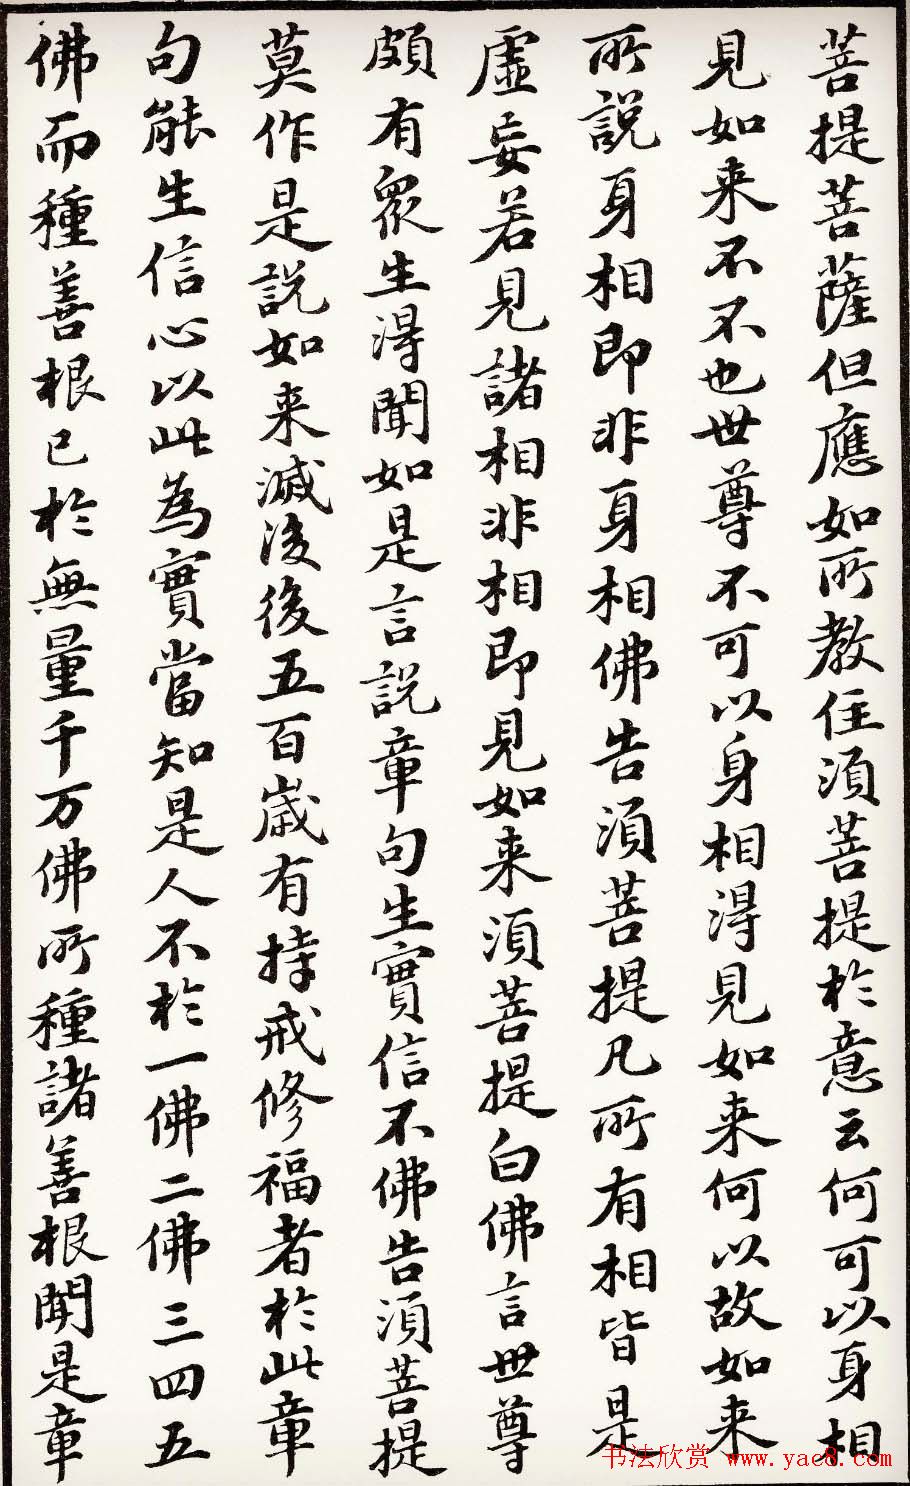 菩提菩薩但應如所教住須菩提於意云何可以身相
見如来不不也世尊不可以身相得見如来何以故如来
所説身相即非身相佛告須菩提凡所有相皆是
虚妄若見諸相非相即見如来須菩提白佛言世尊
頗有眾生得聞如是言説章句生實信不佛告須菩提
莫作是説如来滅後後五百歲有持戒修福者於此章
句能生信心以此為實當知是人不於一佛二佛三四五
佛而種善根已於無量千万佛所種諸善根聞是章
书法欣赏 www.yac8.com